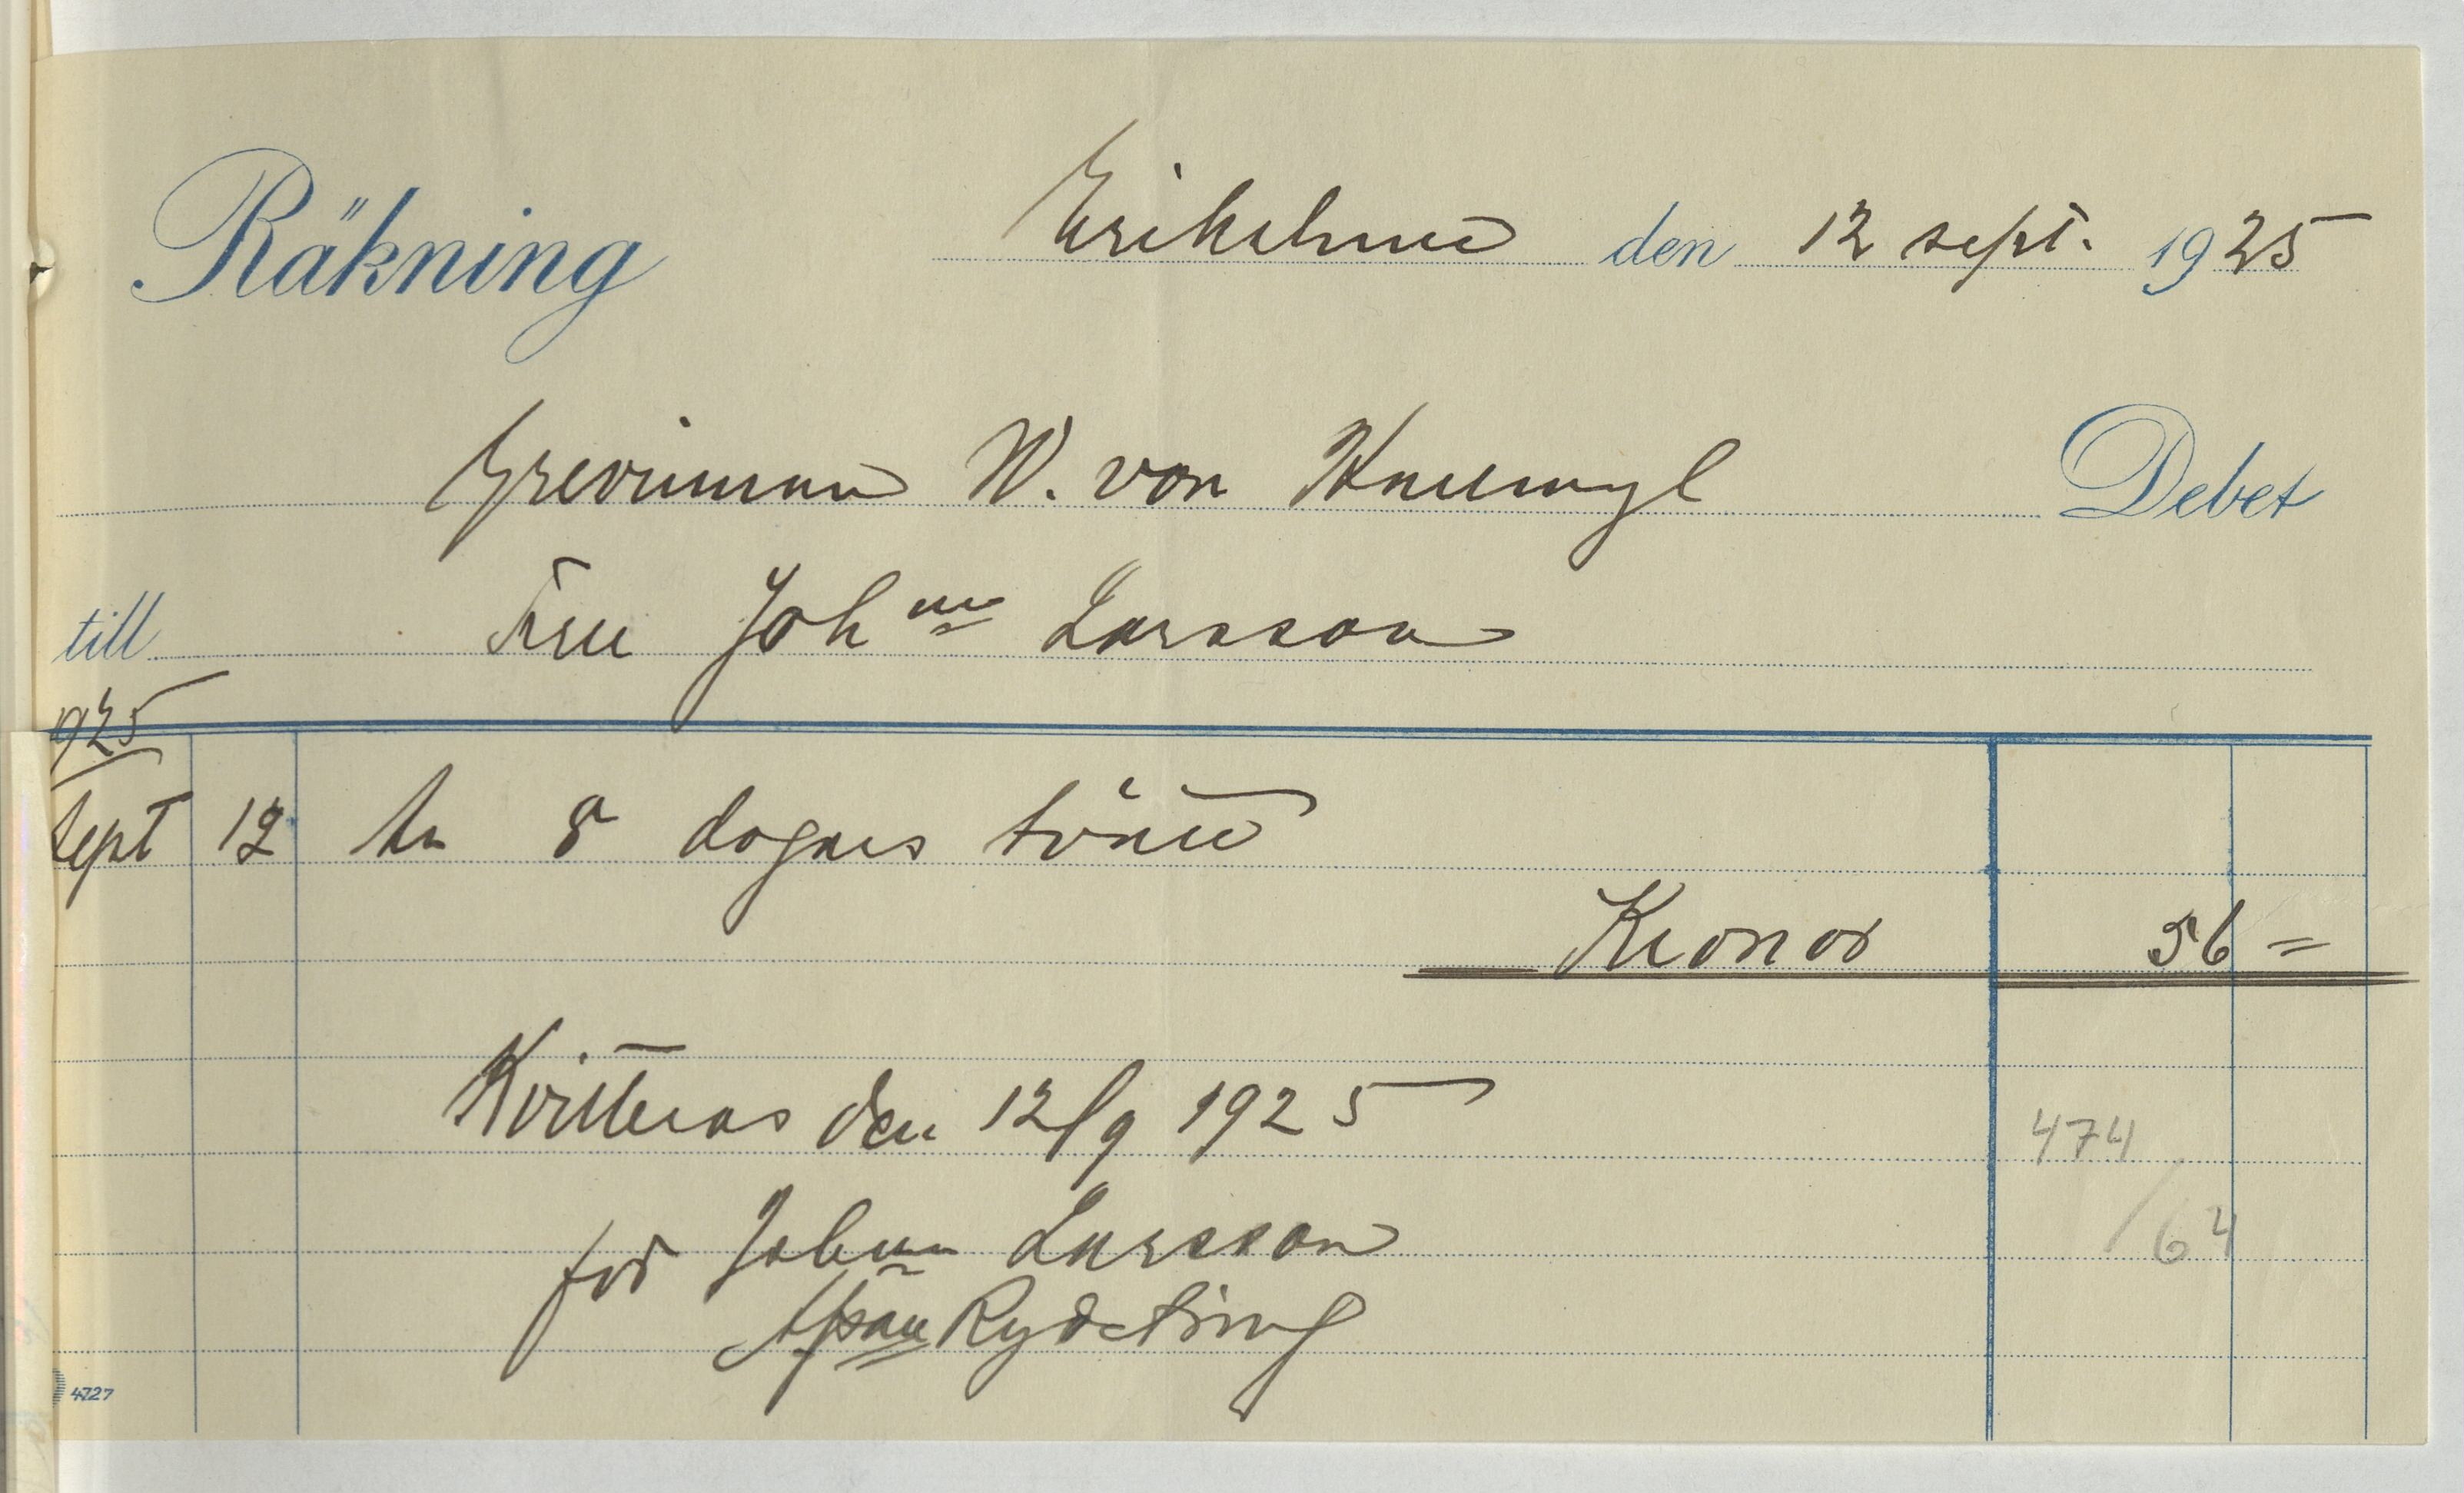 Räkning Erikslund den 12 sept. 1925
Grevinnan W. von Hallwyl Debet
till Fru Joh na Larsson
1925
Sept 12 An 8 dagars tvätt
Kronor 56 =
Kvitteras den 12/9 1925
474
för Johna Larsson
/64
Rydeting
4727